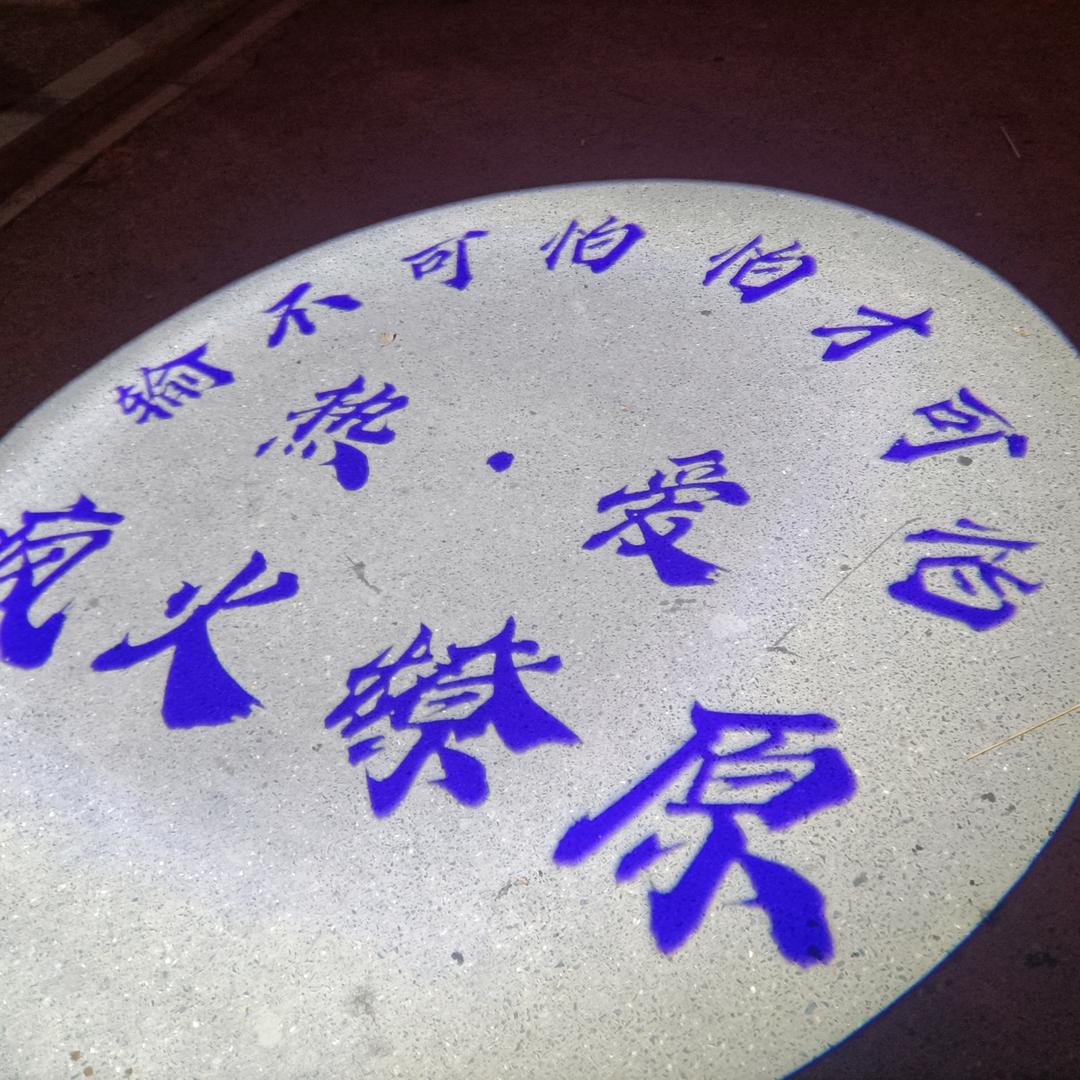 输不可怕怕才可怕
热·爱
火原